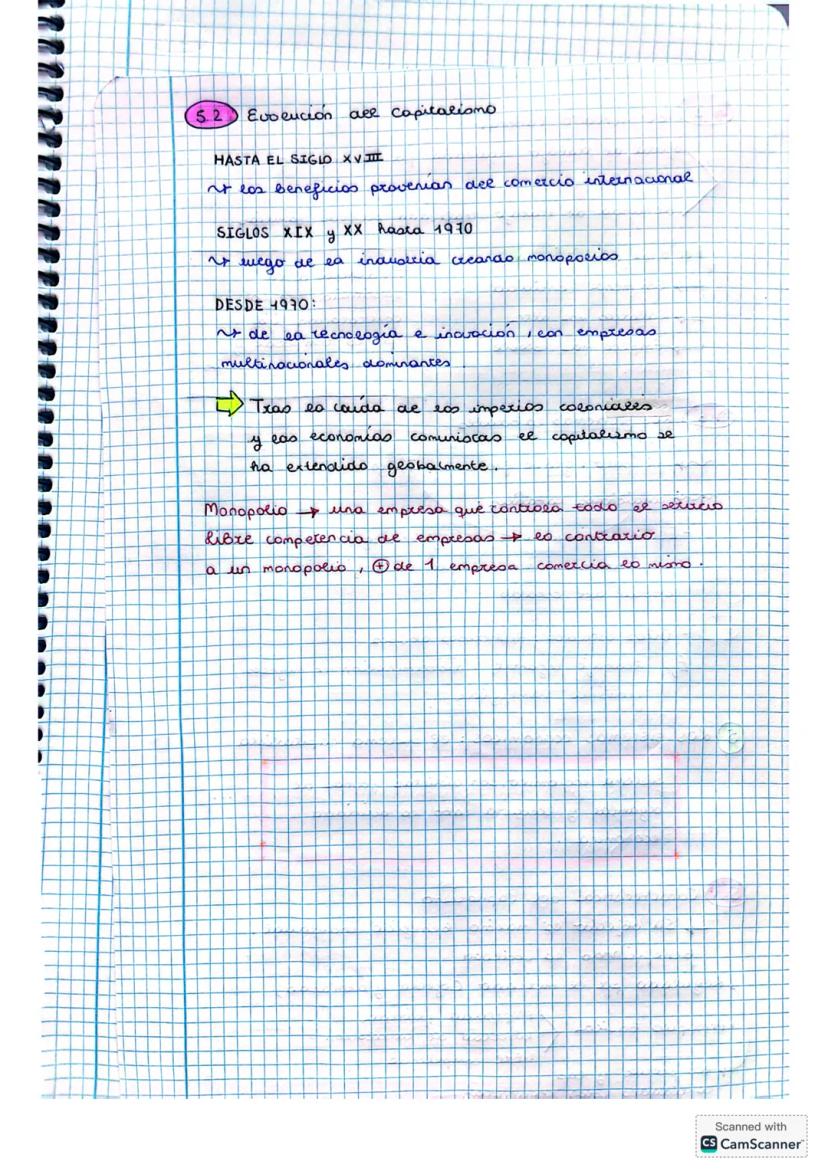 5.2 Evolución del Capitalismo
HASTA EL SIGLO XVIII
los beneficios provenían del comercio internacional
SIGLOS XIX y XX hasta 1970
luego de la industria creando monopolios
DESDE 1970:
de la tecnología e inovación, con empresas
multinacionales dominantes.
Tras la caída de los imperios coloniales
y las economías comunistas el capitalismo se
ha extendido globalmente.
Monopolio → una empresa que controla todo el servicio
libre competencia de empresas → lo contrario
a un monopolio, + de 1 empresa comercia lo mismo.
Scanned with
CS CamScanner